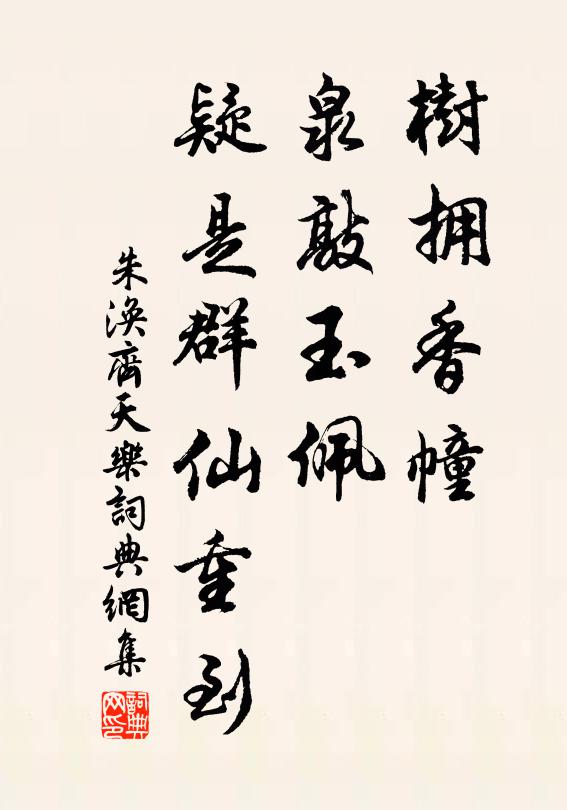 樹拥香幢
泉敲玉佩
疑是群仙重到
朱渙齊天樂詞典網集
詞典
网印